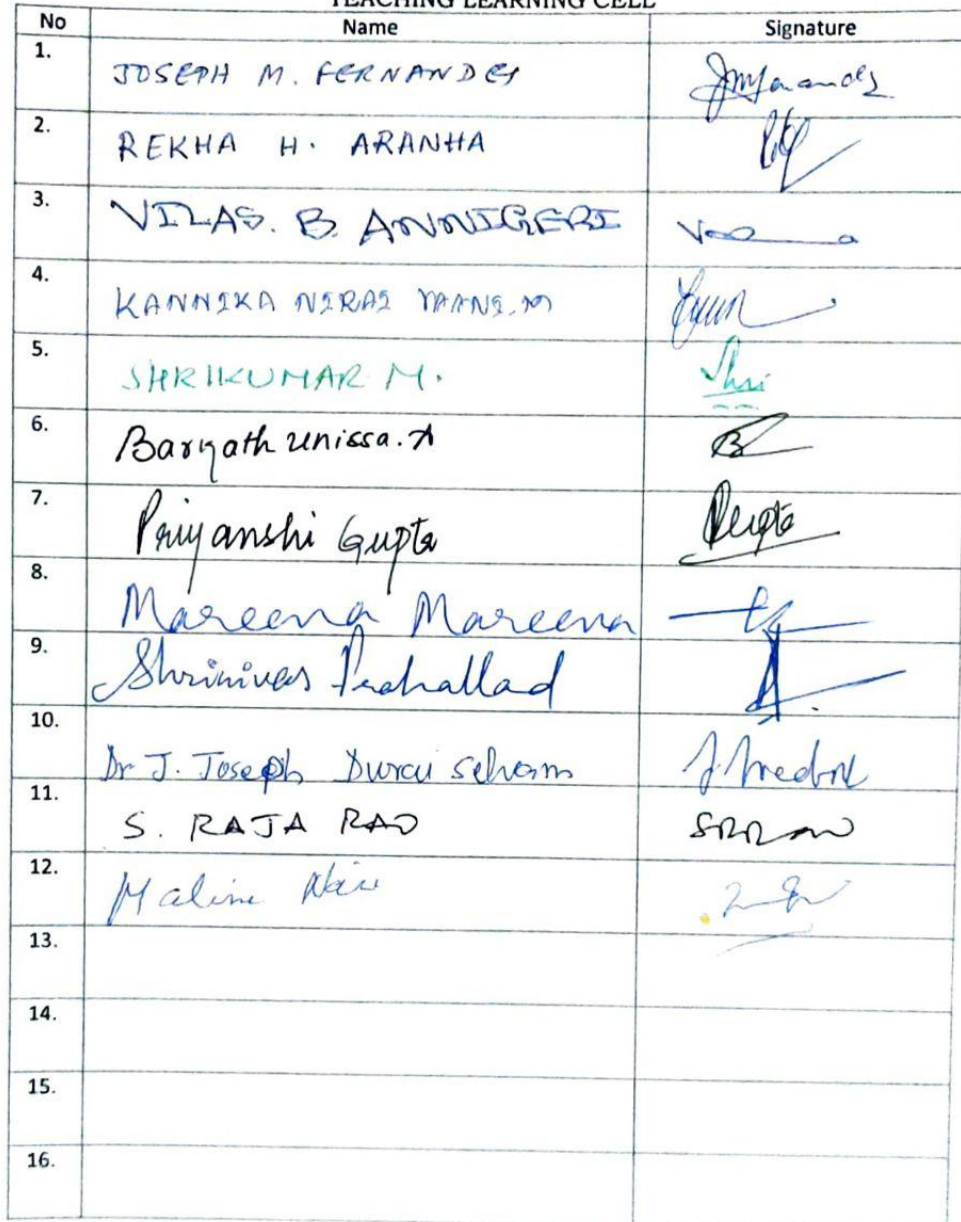 TEACHING LEARNING CELL
No Name Signature
1. JOSEPH M. FERNANDES
2. REKHA H. ARANHA
3. VILAS. B. ANNIGERI
4. KANNIKA NIRAI VAANI. M
5. SHRIKUMAR M. Shri
6. Barqath unissa. A B
7. Priyanshi Gupta PGupta
8. Mareena Mareena
9. Shrinivas Prahallad
10. Dr J. Joseph Durai selvam
11. S. RAJA RAO SRRao
12. Malini Nair
13.
14.
15.
16.